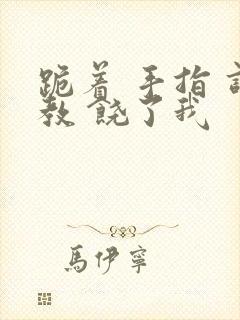 跪着 手指 
教 饶了我
馬伊寧